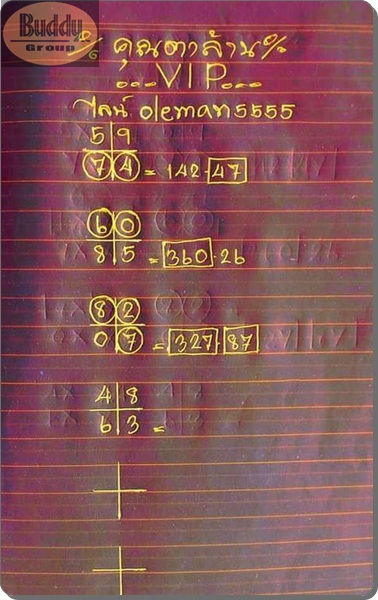 Buddy
Group
% คุณตาล้าน %
...VIP...
ไลน์ oleman5555
5 9
7 4 = 142-47
6 0
8 5 = 360-26
8 2
0 7 = 327-87
4 8
6 3 =